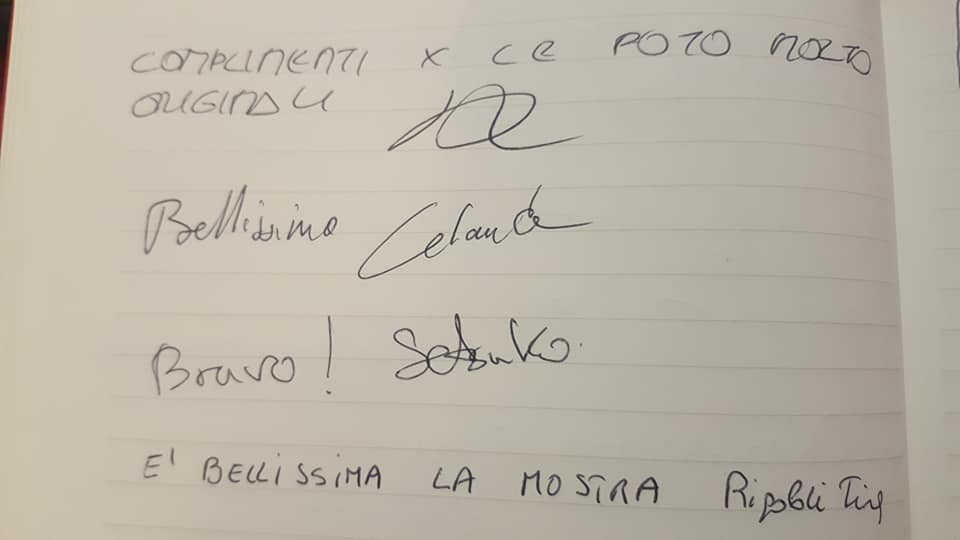 COMPLIMENTI X LE FOTO MOLTO
ORIGINALI
Bellissima
Bravo! Setsuko.
E' BELLISSIMA LA MOSTRA